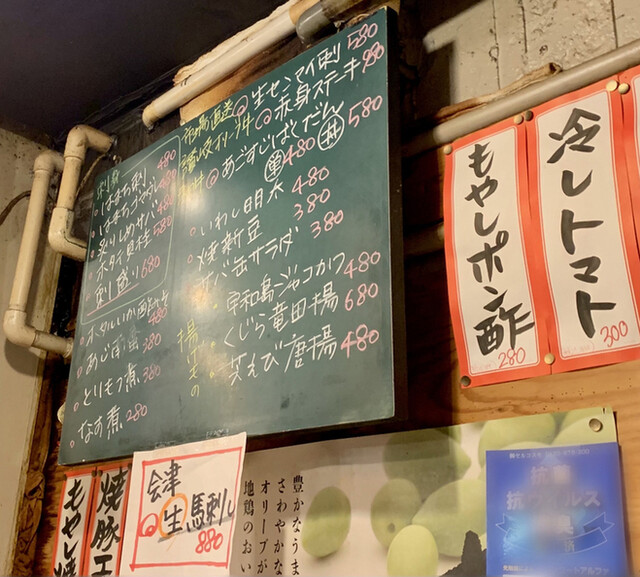 刺身
はまち刺 480
はまちゴマダレ 480
炙りしめサバ 480
ホタテ貝柱 580
刺盛り 680
ホタルいか酢みそ 480
あじ南蛮 380
とりもつ煮 380
なす煮 280
市場直送
生センマイ刺 580
讃岐オリーブ牛
赤身ステーキ
あごすじぼっくだん 480 580
いわし明太 480
焼新豆 380
サバ缶サラダ 380
揚げもの
宇和島ジャコカツ 480
くじら竜田揚 680
芝えび唐揚 480
もやしポン酢
280
冷しトマト
300
会津
生馬刺し
880
焼豚エ
もやし焼
豊かなうま
さわやかな
オリーブが
地鶏のおい
抗菌